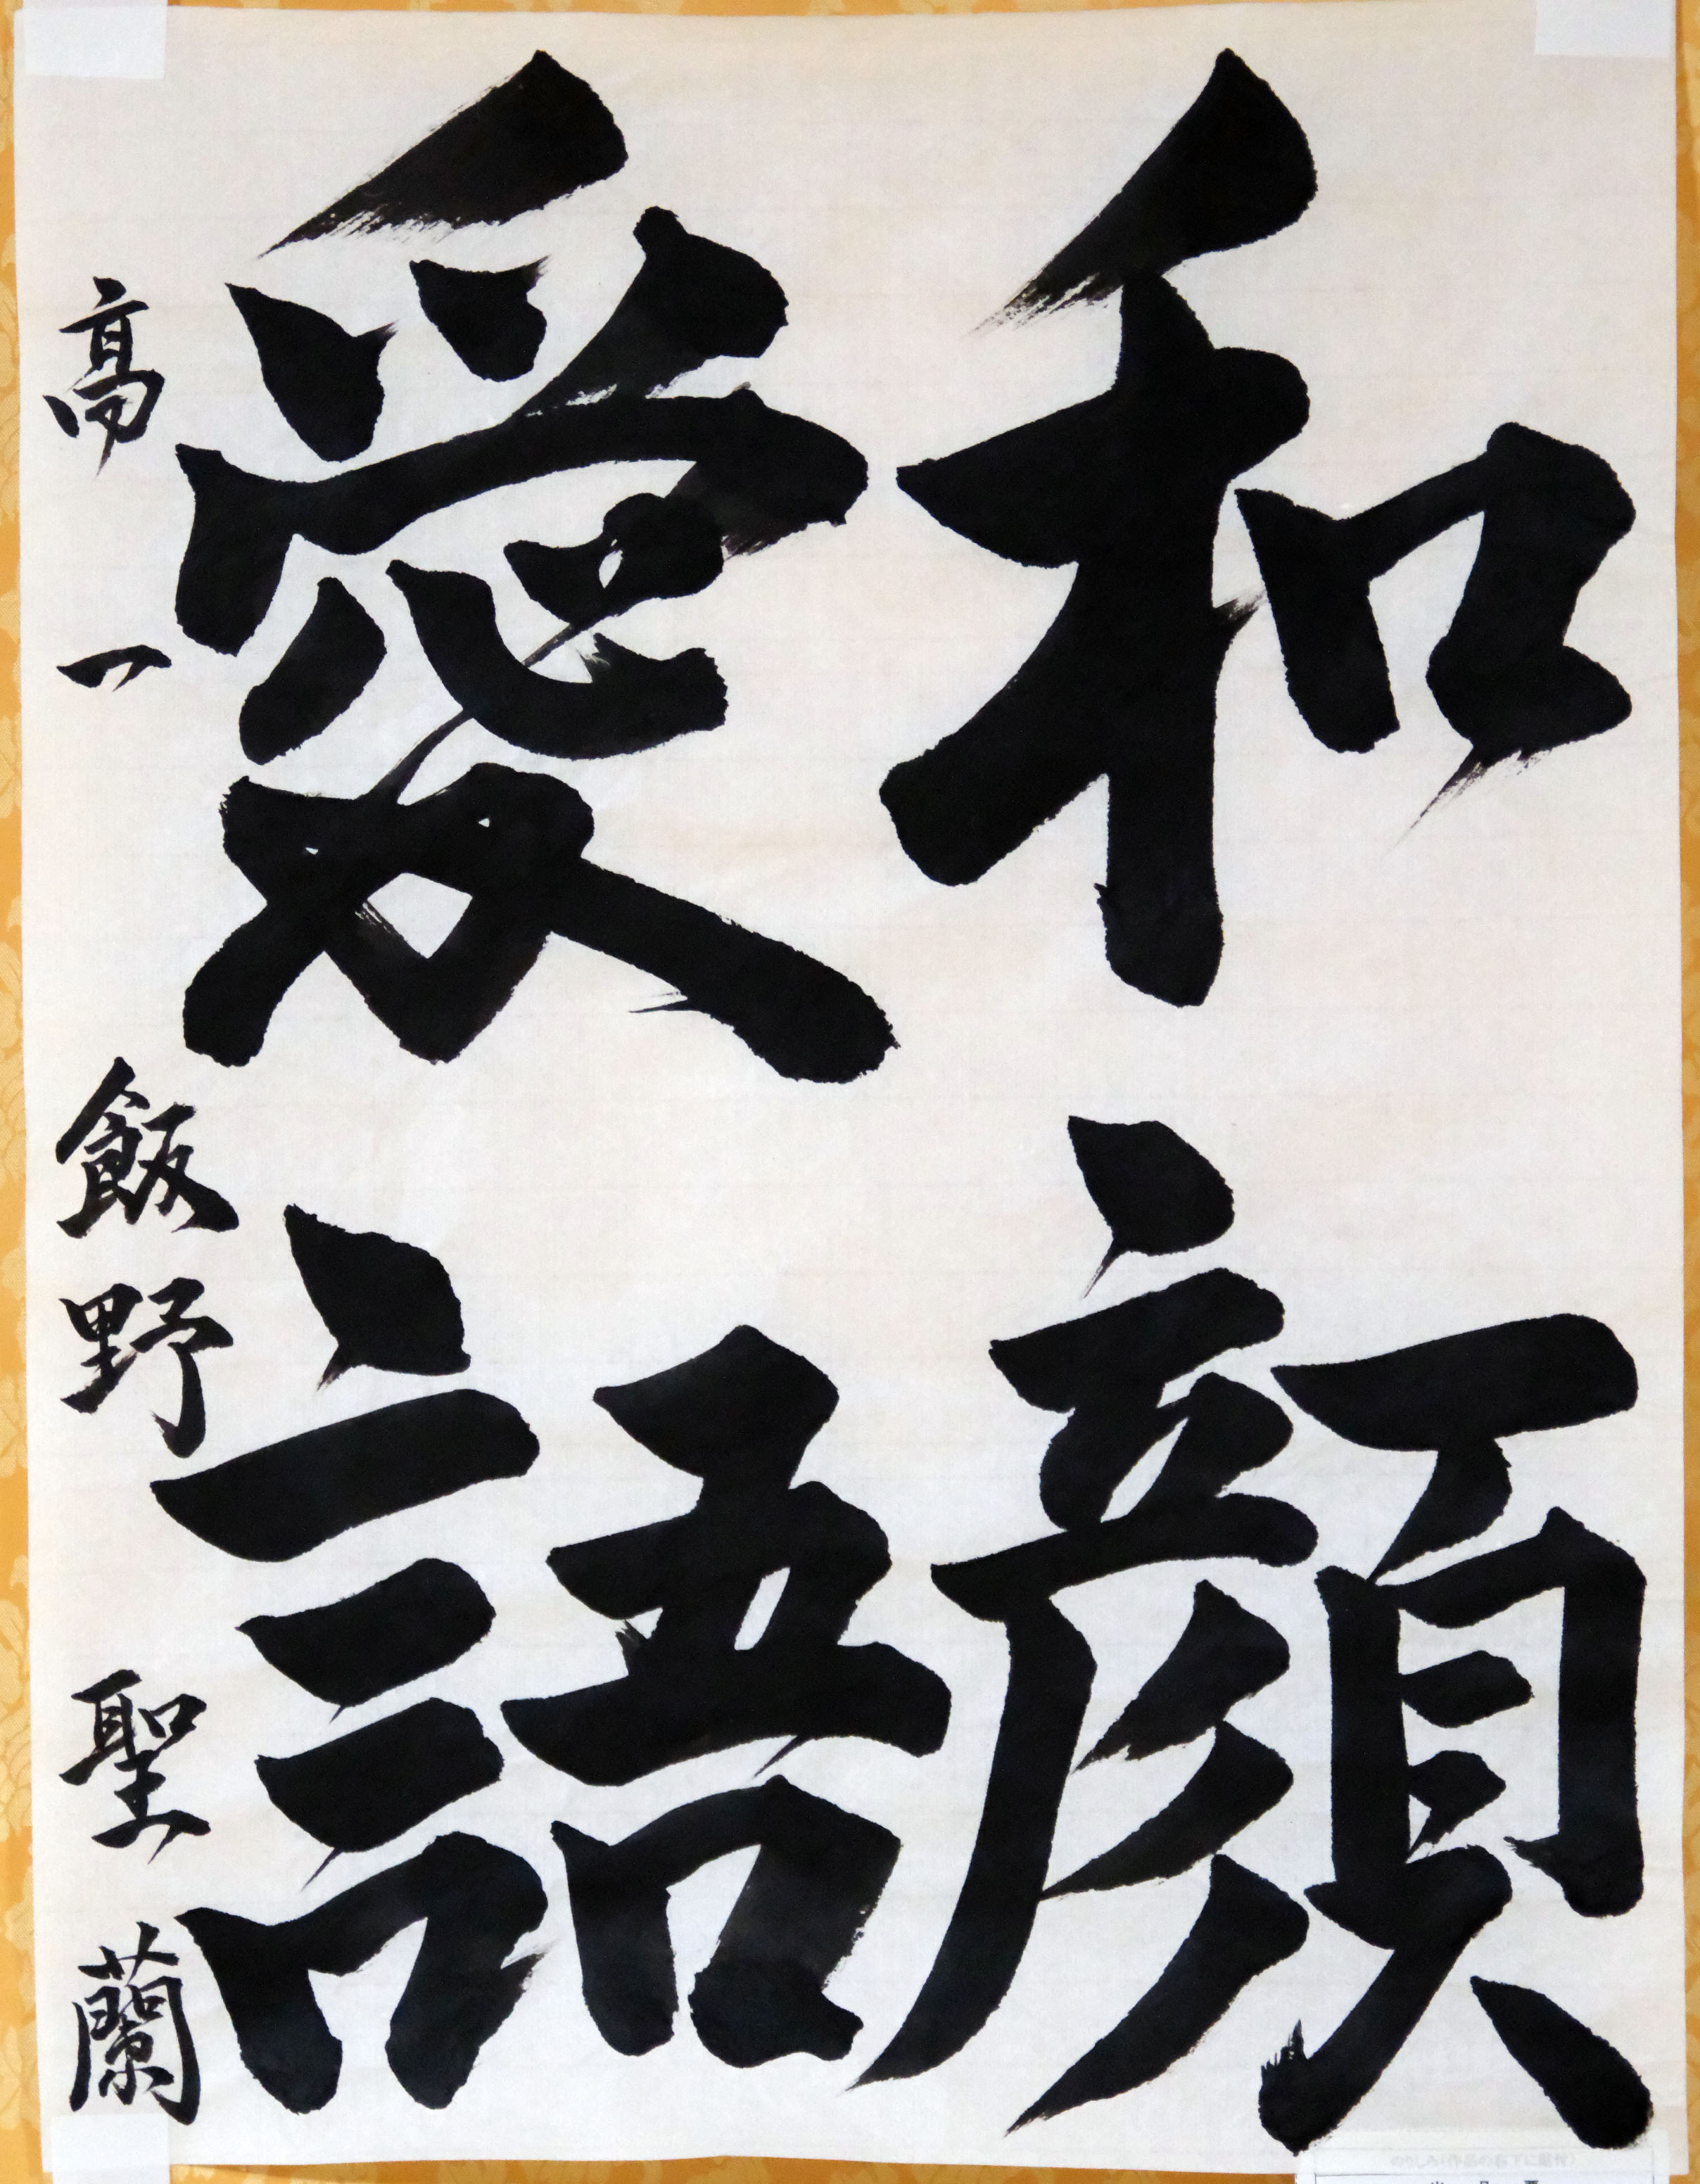 和顔
愛語
高一 飯野聖蘭